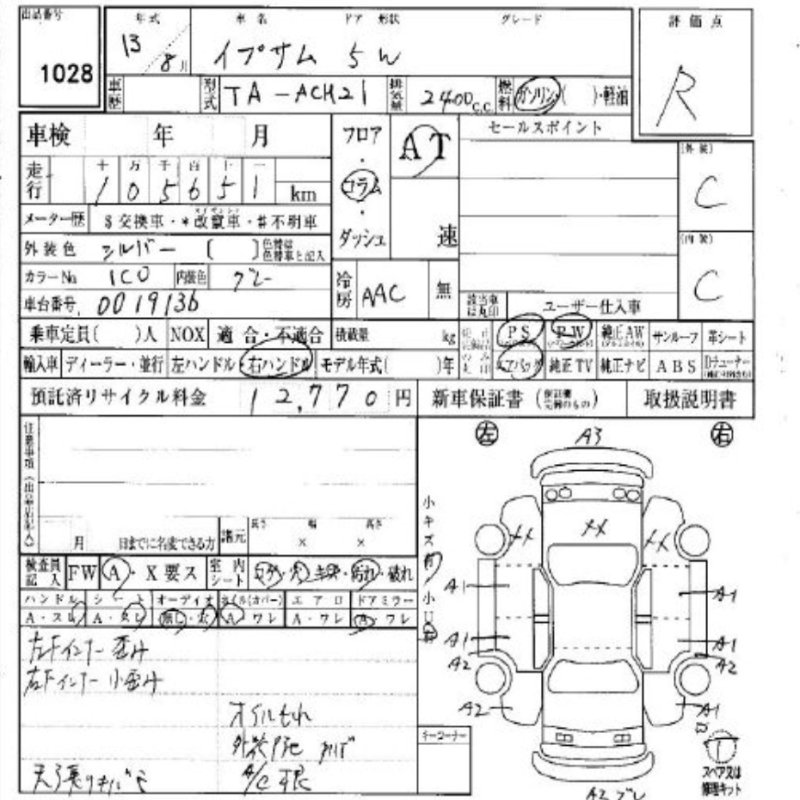 出品番号 1028
年式 車名 ドア 形状 グレード
13/8月 イプサム 5W
車歴 型式 TA-ACM21 排気量 2400c.c. 燃料 ガソリン( )・軽油
評価点 R
車検 年 月
フロア・コラム・ダッシュ AT 速
セールスポイント
(外装) C
(内装) C
走行 十 万 千 百 十 一
105651 km
メーター歴 $交換車・*改ざん車・#不明車
外装色 シルバー [ ]
カラーNo 1C0 内装色 グレー
冷房 AAC 無
車台番号 0019136
該当車は丸印 ユーザー仕入車
乗車定員( )人 NOX 適合・不適合 積載量 kg PS PW 純正AW サンルーフ 革シート
輸入車 ディーラー・並行 左ハンドル・右ハンドル モデル年式( )年 エアバッグ 純正TV 純正ナビ ABS
預託済リサイクル料金 12,770円 新車保証書 取扱説明書
注意事項(出品店記入)
月 日までに名変できる方 諸元 長さ 幅 高さ
× ×
検査員記入 FW A・X要ス 室内シート 汚れ・破れ
ハンドル シート オーディオ ホイル(カバー) エアロ ドアミラー
A・スレ A・スレ 無し A・ワレ A・ワレ A・ワレ
左Fインナー歪み
右Fインナー小歪み
オイルもれ
A/C
コーナー
左 右
A3
小キズ有
小U有
XX XX XX
A1 A1
A1 A1
A2 A2
A2 A1
スペアタイヤは修理キット
A2